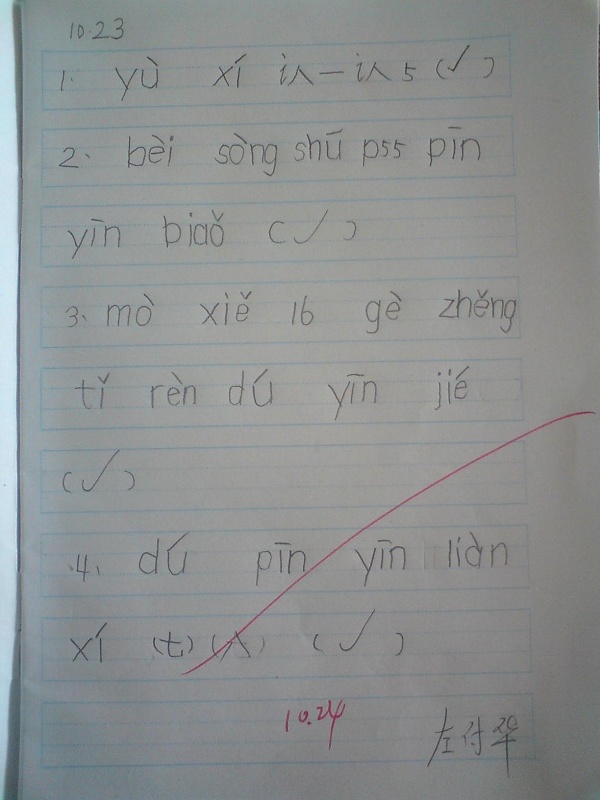 10.23
1. yù xí 认一认5(✓)
2. bèi sòng shū p55 pīn
yīn biaǒ (✓)
3、mò xiě 16 gè zhěng
tǐ rèn dú yīn jié
(✓)
4、dú pīn yīn liàn
xí (七)(八) (✓)
10.24
左付华